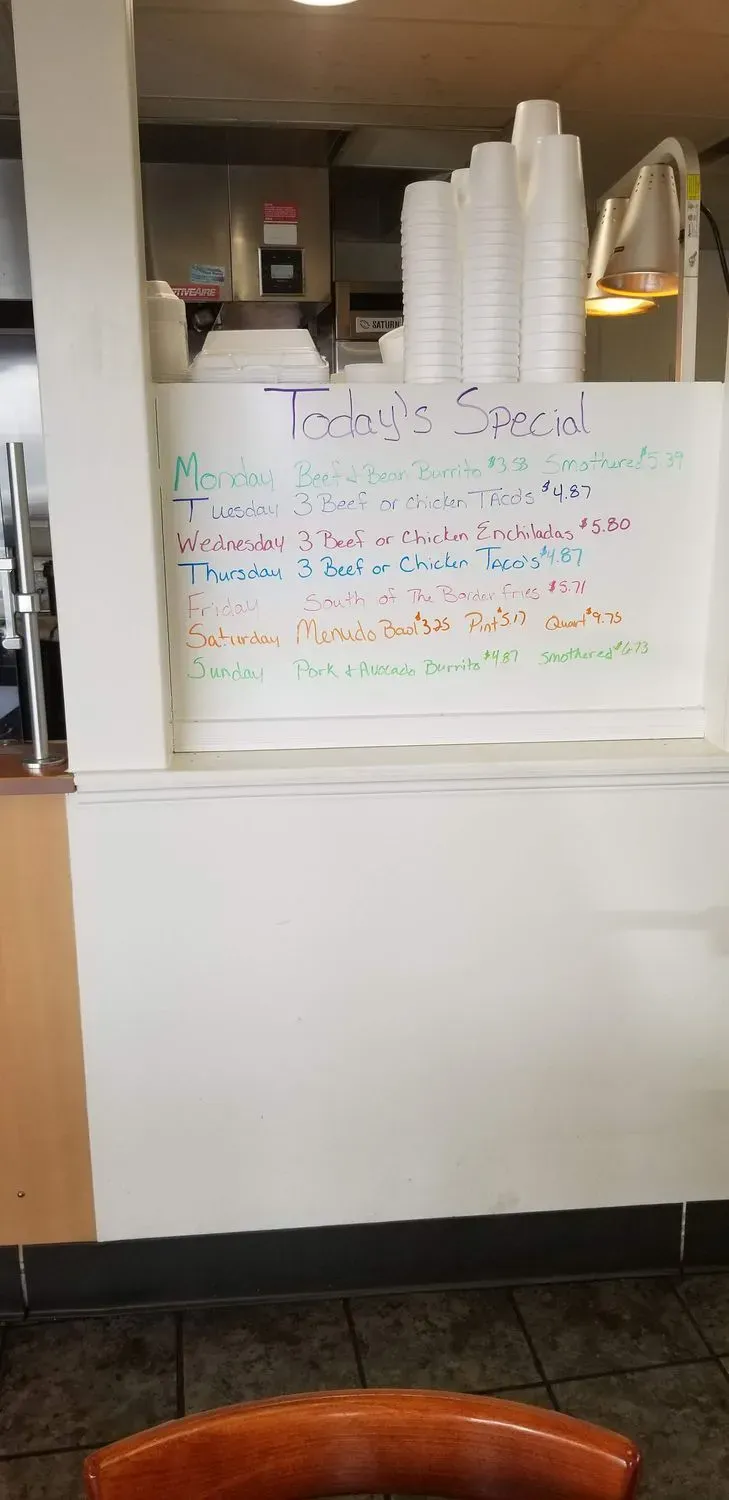 TIVEAIRE
SATURN
Today's Special
Monday Beef & Bean Burrito $3.58 Smothered $5.39
Tuesday 3 Beef or Chicken TACO's $4.87
Wednesday 3 Beef or Chicken Enchiladas $5.80
Thursday 3 Beef or Chicken TACO's $4.87
Friday South of The Border fries $5.71
Saturday Menudo Bowl $3.25 Pint $5.17 Quart $9.75
Sunday Pork & Avocado Burrito $4.87 Smothered $6.73